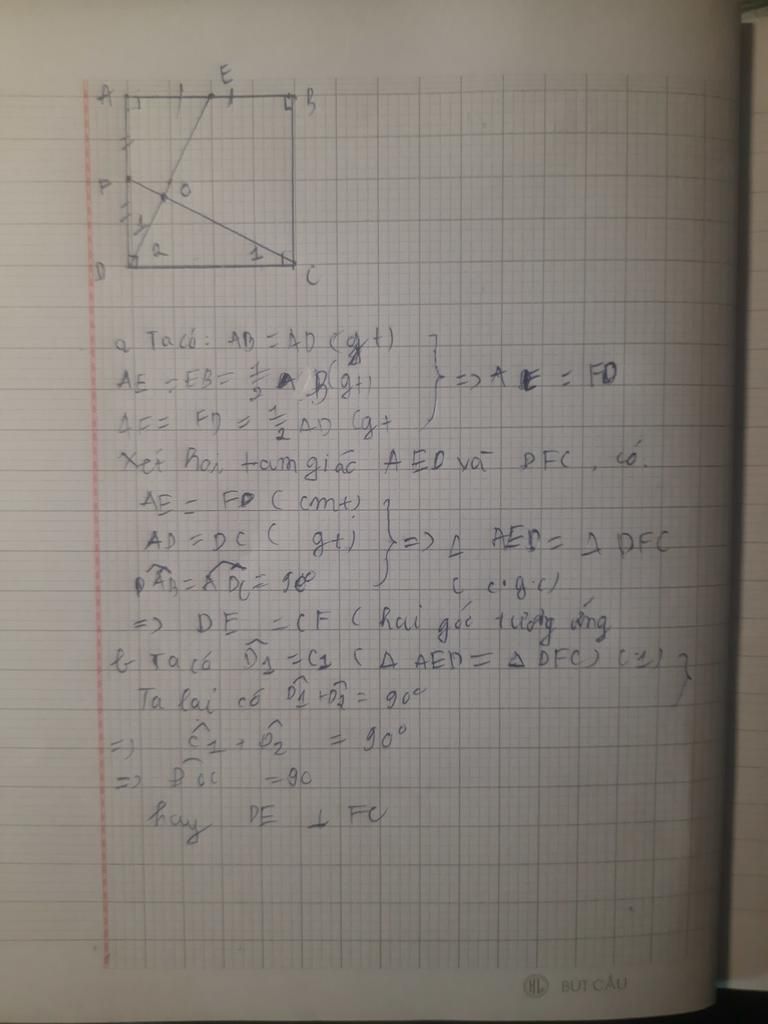 A E B
F O
1
D 2 1 C
a Ta có: AB = AD (gt)
AE = EB = 1/2 AB (gt) => AE = FD
AF = FD = 1/2 AD (gt
Xét hai tam giác AED và DFC, có.
AE = FD (cmt)
AD = DC ( gt) => Δ AED = Δ DFC
DAB = ADC = 90° ( c.g.c)
=> DE = CF ( hai góc tương ứng
b Ta có D̂1 = C1 ( Δ AED = Δ DFC) (1)
Ta lại có D̂1 + D̂2 = 90°
=> Ĉ1 + D̂2 = 90°
=> = 90
hay DE ⊥ FC
HL BÚT CẦU